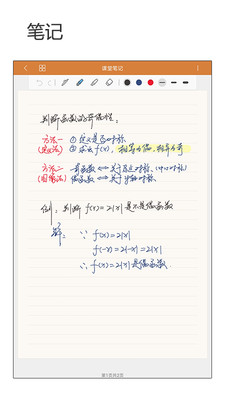 笔记
课堂笔记
判断函数的奇偶性:
方法一 ① 定义是否对称
(定义法) ② 求出 f(x),
方法二 奇函数 ⟺ 关于原点对称
(图像法) 偶函数 ⟺ 关于y轴对称
例: 判断 f(x)=2|x| 是不是偶函数
解: ∵ f(x)=2|x|
f(-x)=2|-x|=2|x|
∴ f(x)=2|x| 是偶函数
第1页共2页